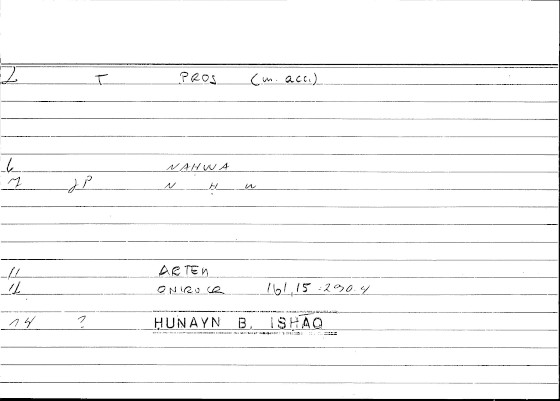 2 T PROS (m. acc.)
6 NAHWA
7 JP N Ḥ W
11 ARTEM
12 ONIROCR 161,15:290.4
14 ? HUNAYN B. ISHĀQ